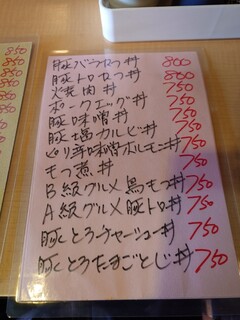 豚バラねつ丼 800
豚トロねつ丼 800
火焼肉丼 750
ポークエッグ丼 750
豚味噌丼 750
豚塩カルビ丼 750
ピリ辛味噌ホルモン丼 750
もつ煮丼 750
B級グルメ鳥もつ丼 750
A級グルメ豚トロ丼 750
豚とろチャーシュー丼 750
豚とろたまごとじ丼 750
850
850
850
850